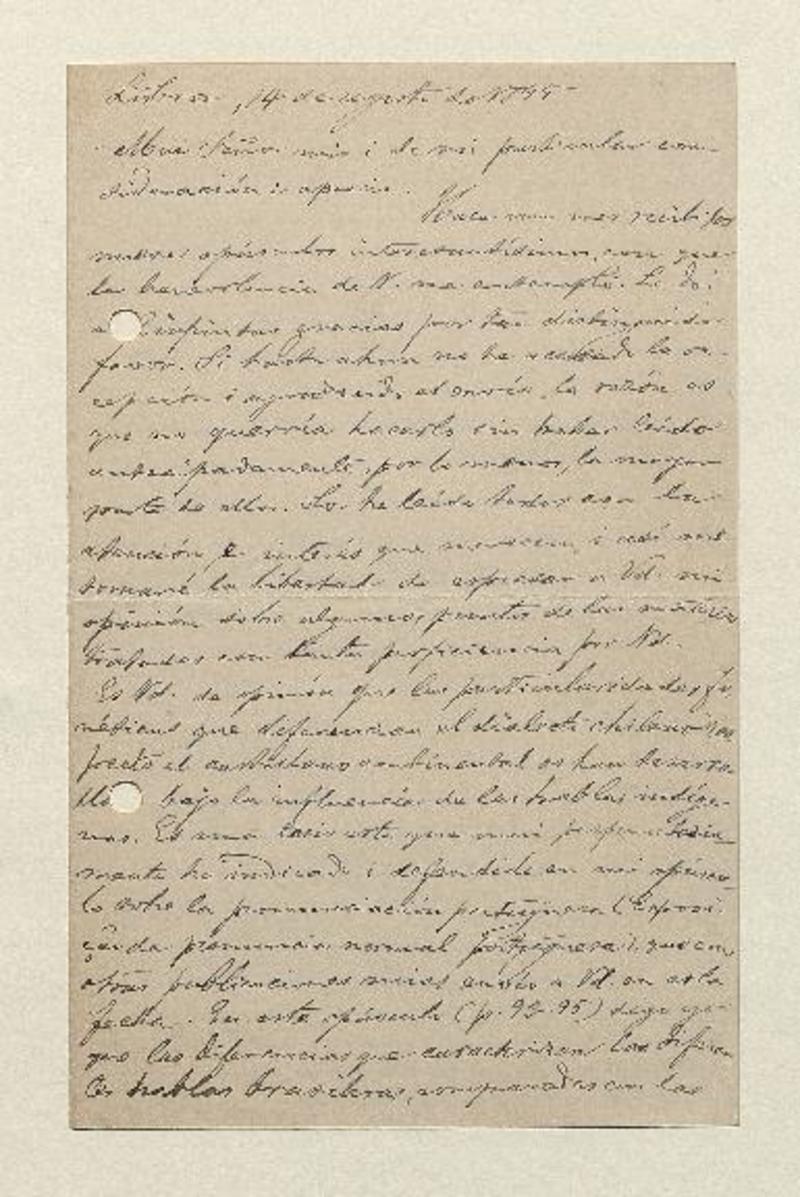 Lisboa, 14 de agosto de 1895
Mui Señor mio i de mi particular con-
sideración i aprecio.
Hace un mes recibi los
nueve opúsculos interesantísimos, con que
la benevolencia de V. me contempló. Le doi
infinitas gracias por tan distinguido
favor. Si hasta ahora no he acusado la re-
cepción i agradecido el envío, la razón es
que no querría hacerlo sin haber leído
antecipadamente, por lo menos, la mayor
parte de ellos. Los he leído todos con la
atención e interés que merecen, i así me
tomaré la libertad de espresar a Vd. mi
opinión sobre algunos puntos de las materias
tratadas con tanta proficiencia por Vd.
Es Vd. de opinión que las particularidades fo-
néticas que diferencian el dialecto chileno res-
pecto al castellano continental se han desarro-
llado bajo la influencia de las hablas indíge-
nas. Es una tesis esta que mui
mente he indicado i defendido en mi opúscu-
lo sobre la pronunciación portuguesa (Exposi-
ção da pronuncia normal portuguesa), que con
otras publicaciones mias envío a Vd. en esta
fecha. En este opúsculo (p. 93-95) digo yo
que las diferencias que caracterizan las diferen-
tes hablas brasileras, comparadas con las